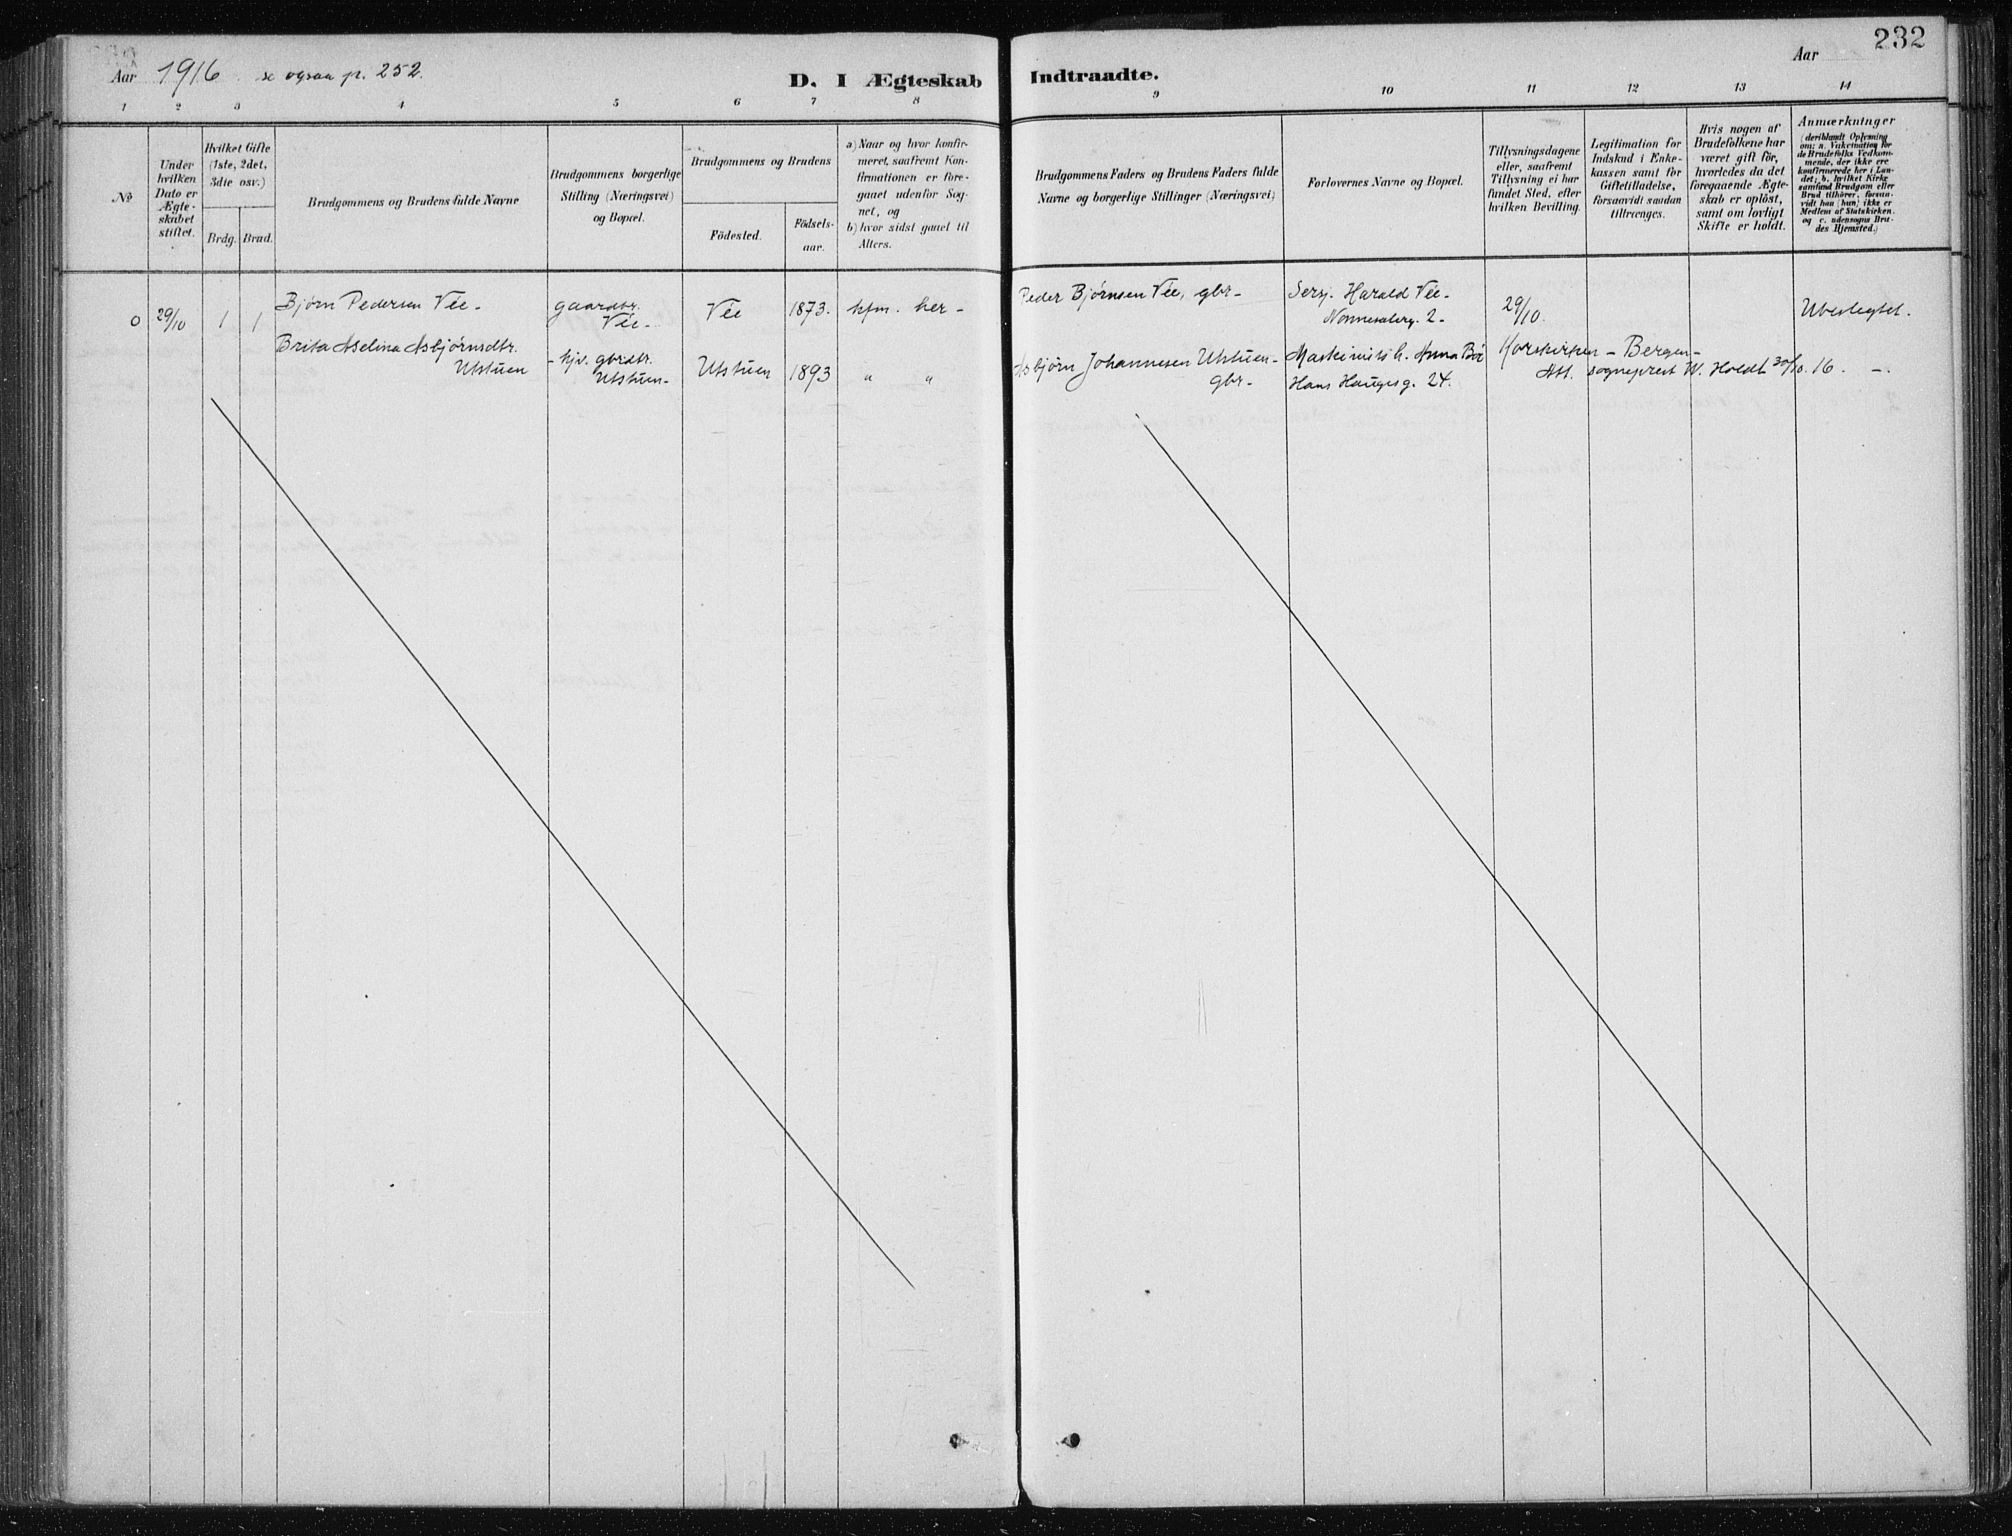 Aar 1916. se ogsaa p. 252.
D. I Ægteskab Indtraadte.
Aar
232
1 2 3 4 5 6 7 8 9 10 11 12 13 14
№
Under
hvilken
Dato er
Ægte-
skabet
stiftet.
Hvilket Gifte
(1ste, 2det,
3die osv.)
Brdg. Brud.
Brudgommens og Brudens fulde Navne
Brudgommens borgerlige
Stilling (Næringsvei)
og Bopæl.
Brudgommens og Brudens
Födested.
Födsels-
aar.
a) Naar og hvor konfir-
meret, saafremt Kon-
firmationen er fore-
gaaet udenfor Sog-
net, og
b) hvor sidst gaaet til
Alters.
Brudgommens Faders og Brudens Faders fulde
Navne og borgerlige Stillinger (Næringsvei)
Forlovernes Navne og Bopæl.
Tillysningsdagene
eller, saafremt
Tillysning ei har
fundet Sted, efter
hvilken Bevilling.
Legitimation for
Indskud i Enke-
kassen samt for
Giftetilladelse,
forsaavidt saadan
tiltrænges.
Hvis nogen af
Brudefolkene har
været gift för,
hvorledes da det
foregaaende Ægte-
skab er oplöst,
samt om lovligt
Skifte er holdt.
Anmærkninger
(deriblandt Oplysning
om: a. Vakcination for
de Brudefolks Vedkom-
mende, der ikke ere
konfirmerede her i Lan-
det; b. hvilket Kirke
samfund Brudgom eller
Brud tilhörer, forsaa-
vidt han (hun) ikke er
Medlem af Statskirken.
og c. udensogns Bru-
des Hjemsted.)
0 29/10 1 1 Bjørn Pedersen Vée - gaardbr. Vée - Vée 1873. kfm. her - Peder Bjørnsen Vée, gbr - Sersj. Harald Vée - Nonneseterg. 2 - 29/10. Ubeslegtet.
Brita Aselina Asbjørnsdtr. Utstuen - hjv. gbrdtr. Utstuen - Utstuen 1893 " " Asbjørn Johannesen Utstuen - gbr - Anna Bøe Hans Haugesg. 24. Korskirken - Bergen - Att. sogneprest W. Holdt 30/10. 16. -